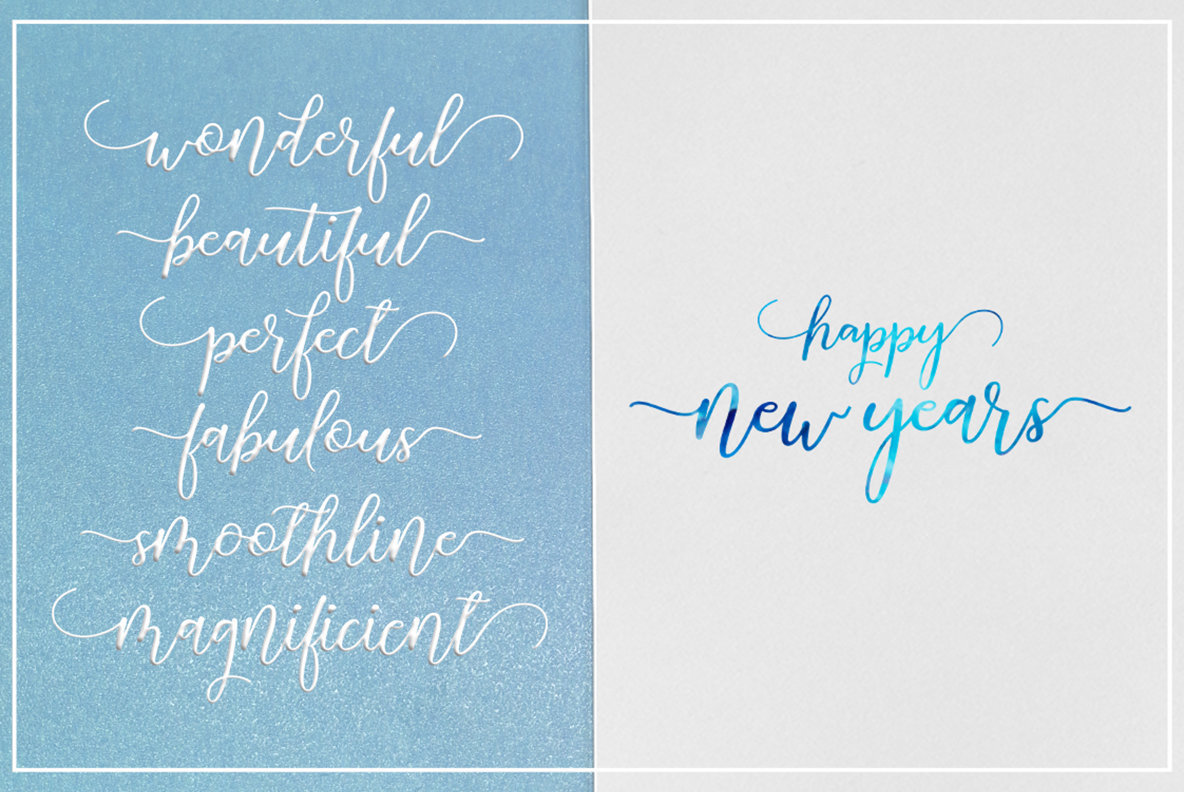 wonderful
beautiful
perfect
fabulous
smoothline
magnificient
happy
new years